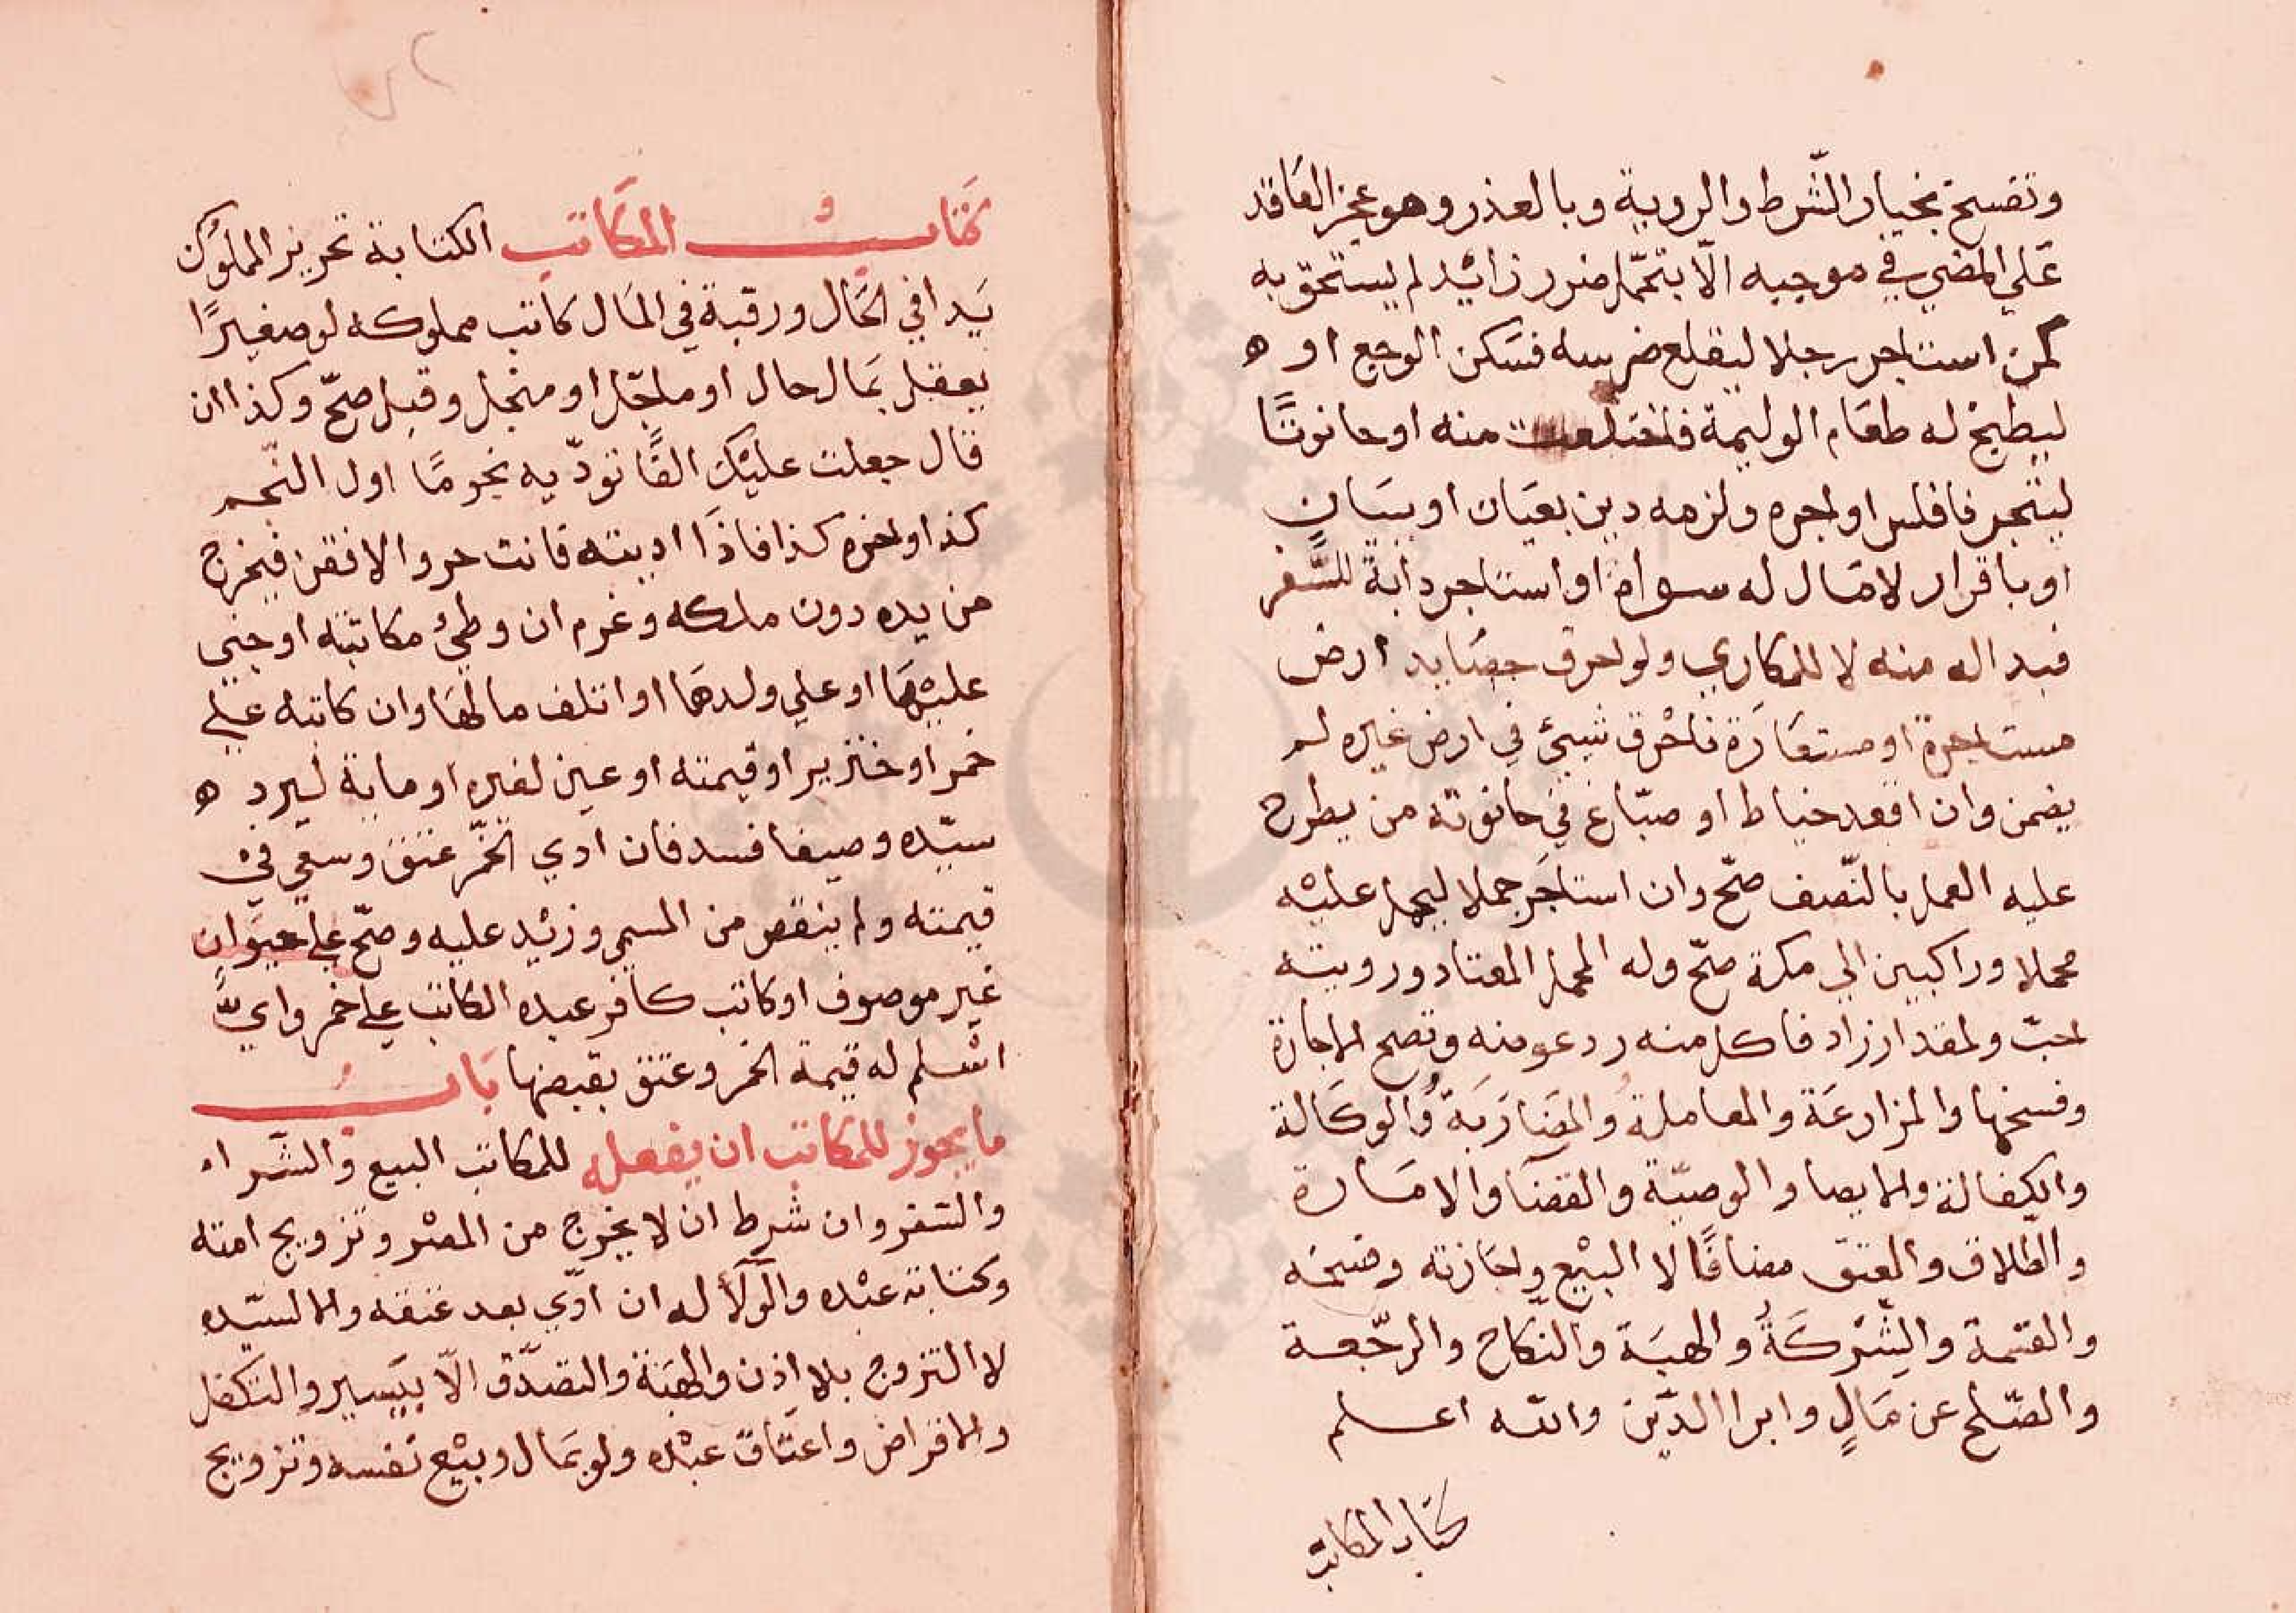 وتفسخ بخيار الشّرط والروية وبالعذر وهو عجز العَاقد
عَلي المضي في موجبه الّا بتحّمل ضرر زائد لم يستحق به
كمن استاجر رجلا ليقلع ضرسه فسَكن الوجع او ه
ليطبخ له طعَام الوليمة فاختلعت منه او حانوتًا
ليتجر فافلس او اجره ولزمه دين بعيَان او ببيَانٍ
او باقرار لا مَال له سواه او استاجر دابة للسَّفر
فبدا له منه لا للمكاري ولو احرق حصَايد ارض
مستاجرة او مستعَارَة فاحْرق شيئ في ارض غيره لم
يضمن وان اقعد خياط او صبّاغ في حانوته من يطرح
عليه العمل بالنّصف صحّ وان استاجَر جملا ليحمل عليْه
محملا وراكبين الي مكة صحّ وله المحمل المعتاد ورويته
احبّ ولمقدار زاد فاكل منه رد عوضه وتصح الاجازة
وفسخها والمزارعَة والمعاملةُ والمضَارَبَة وُالوكَالة
والكفالة والايصا والوصيّة والقضَا والامَارة
والطّلاق والعتق مضافًا لا البيْع واجَازته وفسخه
والقسْمة والشّرَكَةُ والهبَة والنكاح والرجّعة
والصّلح عن مَالٍ وابرا الدّين والله اعلم
كتاب المكاتب
كَتابُ المكَاتب الكتابة تحرير المملوُك
يَدا في الحَال ورقبة في المَال كاتب مملوكه لو صغيرًا
يعقل بمَال حال او ماجّل او منجّل وقبل صحّ وكذا ان
قال جعلت عليْك الفًا تودّيه نجومًا اول النّجم
كذا واخره كذا فاذَا اديته فانت حر والا فقن فيخرج
من يده دون ملكه وغرم ان وطيُ مكاتبته او جني
عليْهَا او علي ولدهَا او اتلف مالهَا وان كاتبه علي
خمر او خنزير او قيمته او عين لغيره او ماية ليرد ه
سيّده وصيفا فسد فان ادي الخمّر عتق وسعي في
قيمته ولم ينقص من المسمي وزيْد عليه وصحّ علي حيَوان
غير موصوف او كاتب كافر عبده الكاتب علي خمر وايٌّ
اسْلم له قيمة الخمر وعتق بقبضها بَابُ
ما يجوز للمكاتب ان يفعله للمكاتب البيع والشّراء
والسّفر وان شرط ان لا يخرج من المصْر وتزويج امته
وكتابة عبْده والوَلآ له ان ادّي بعد عتقه والا لسيّده
لا التزوج بلا اِذن والهبَة والتصَدّق الّا بيَسير والتكفل
والاقراض واعتَاق عبْده ولو بمَال وبيْع نَفسه وتزويج